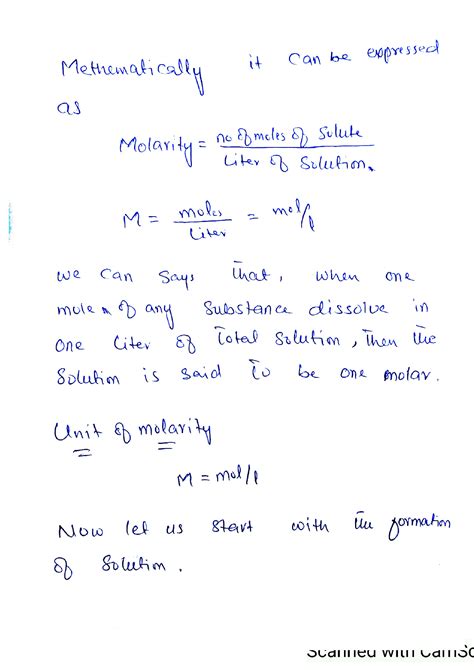 Methematically it can be expressed
as
Molarity = no of moles of Solute / Liter of Solution.
M = moles / Liter = mol/l
we can says that, when one
mole of any Substance dissolve in
one Liter of Total Solution, Then the
Solution is said To be one molar.
Unit of molarity
M = mol/l
Now let us start with the formation
of Solution.
Scanned with CamSc